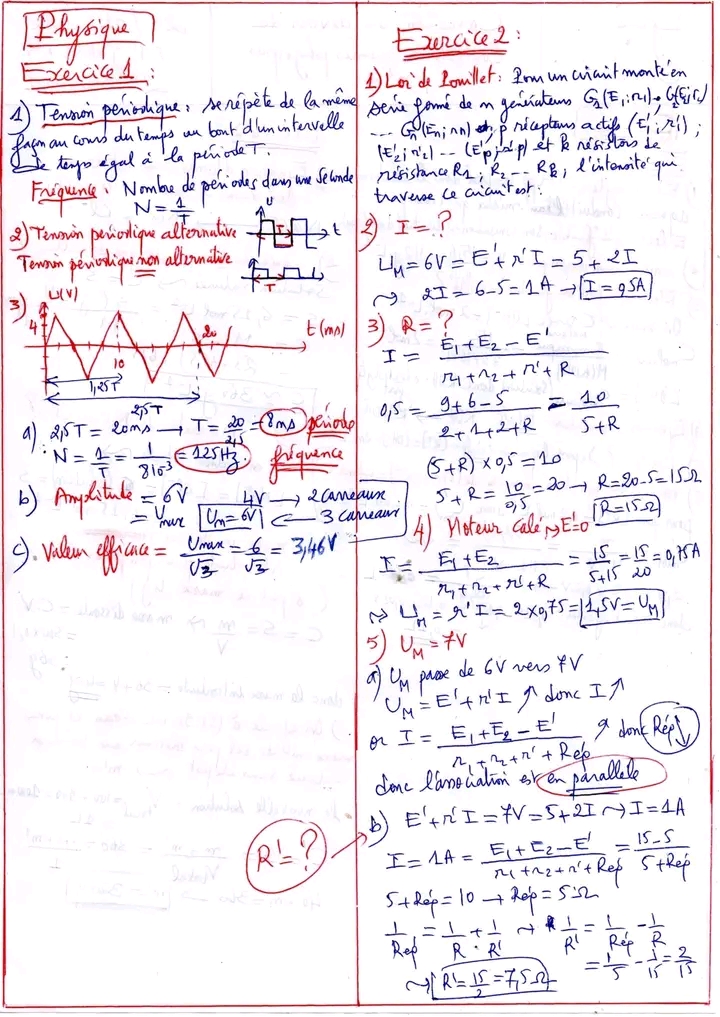 Physique
Exercice 1 :
1) Tension périodique : se répète de la même
façon au cours du temps au bout d'un intervelle
de temps égal à la période T.
Fréquence : Nombre de périodes dans une seconde
N = 1/T
2) Tension périodique alternative
U
T
t
Tension périodique non alternative
T
3) U(V)
4
t (ms)
10
20
1,25T
2,5T
a) 2,5T = 20ms → T = 20/2,5 = 8ms période
N = 1/T = 1/8 10⁻³ = 125Hz fréquence
b) Amplitude = 6V
= Umax
4V → 2 carreaux
Um = 6V ← 3 carreaux
c) Valeur efficace = Umax/√3 = 6/√3 = 3,46V
Exercice 2 :
1) Loi de Pouillet : Pour un circuit monté en
série formé de n générateurs G1(E1; r1), G2(E2; r2)
... Gn(En; rn) p récepteurs actifs (E'1; r'1);
(E'2; r'2) ... (E'p; r'p) et k résistors de
résistance R1; R2 ... Rk, l'intensité qui
traverse ce circuit est :
2) I = ?
UM = 6V = E' + r'I = 5 + 2I
⇝ 2I = 6-5 = 1A → I = 0,5A
3) R = ?
I = E1 + E2 - E' / r1 + r2 + r' + R
0,5 = 9+6-5 / 2+1+2+R = 10 / 5+R
(5+R) × 0,5 = 10
5+R = 10/0,5 = 20 → R = 20-5 = 15Ω
R = 15Ω
4) Moteur calé, ⇝ E' = 0
I = E1 + E2 / r1 + r2 + r' + R = 15/5+15 = 15/20 = 0,75A
⇝ UM = r'I = 2 × 0,75 = 1,5V = UM
5) UM = 7V
a) UM passe de 6V vers 7V
UM = E' + r'I ↗ donc I ↗
or I = E1 + E2 - E' / r1 + r2 + r' + Réq ↗ donc Réq ↓
donc l'association est en parallèle
R' = ? →
b) E' + r'I = 7V = 5 + 2I ⇝ I = 1A
I = 1A = E1 + E2 - E' / r1 + r2 + r' + Réq = 15-5 / 5+Réq
5 + Réq = 10 → Réq = 5Ω
1/Réq = 1/R + 1/R' ⇝ 1/R' = 1/Réq - 1/R
= 1/5 - 1/15 = 2/15
⇝ R' = 15/2 = 7,5Ω